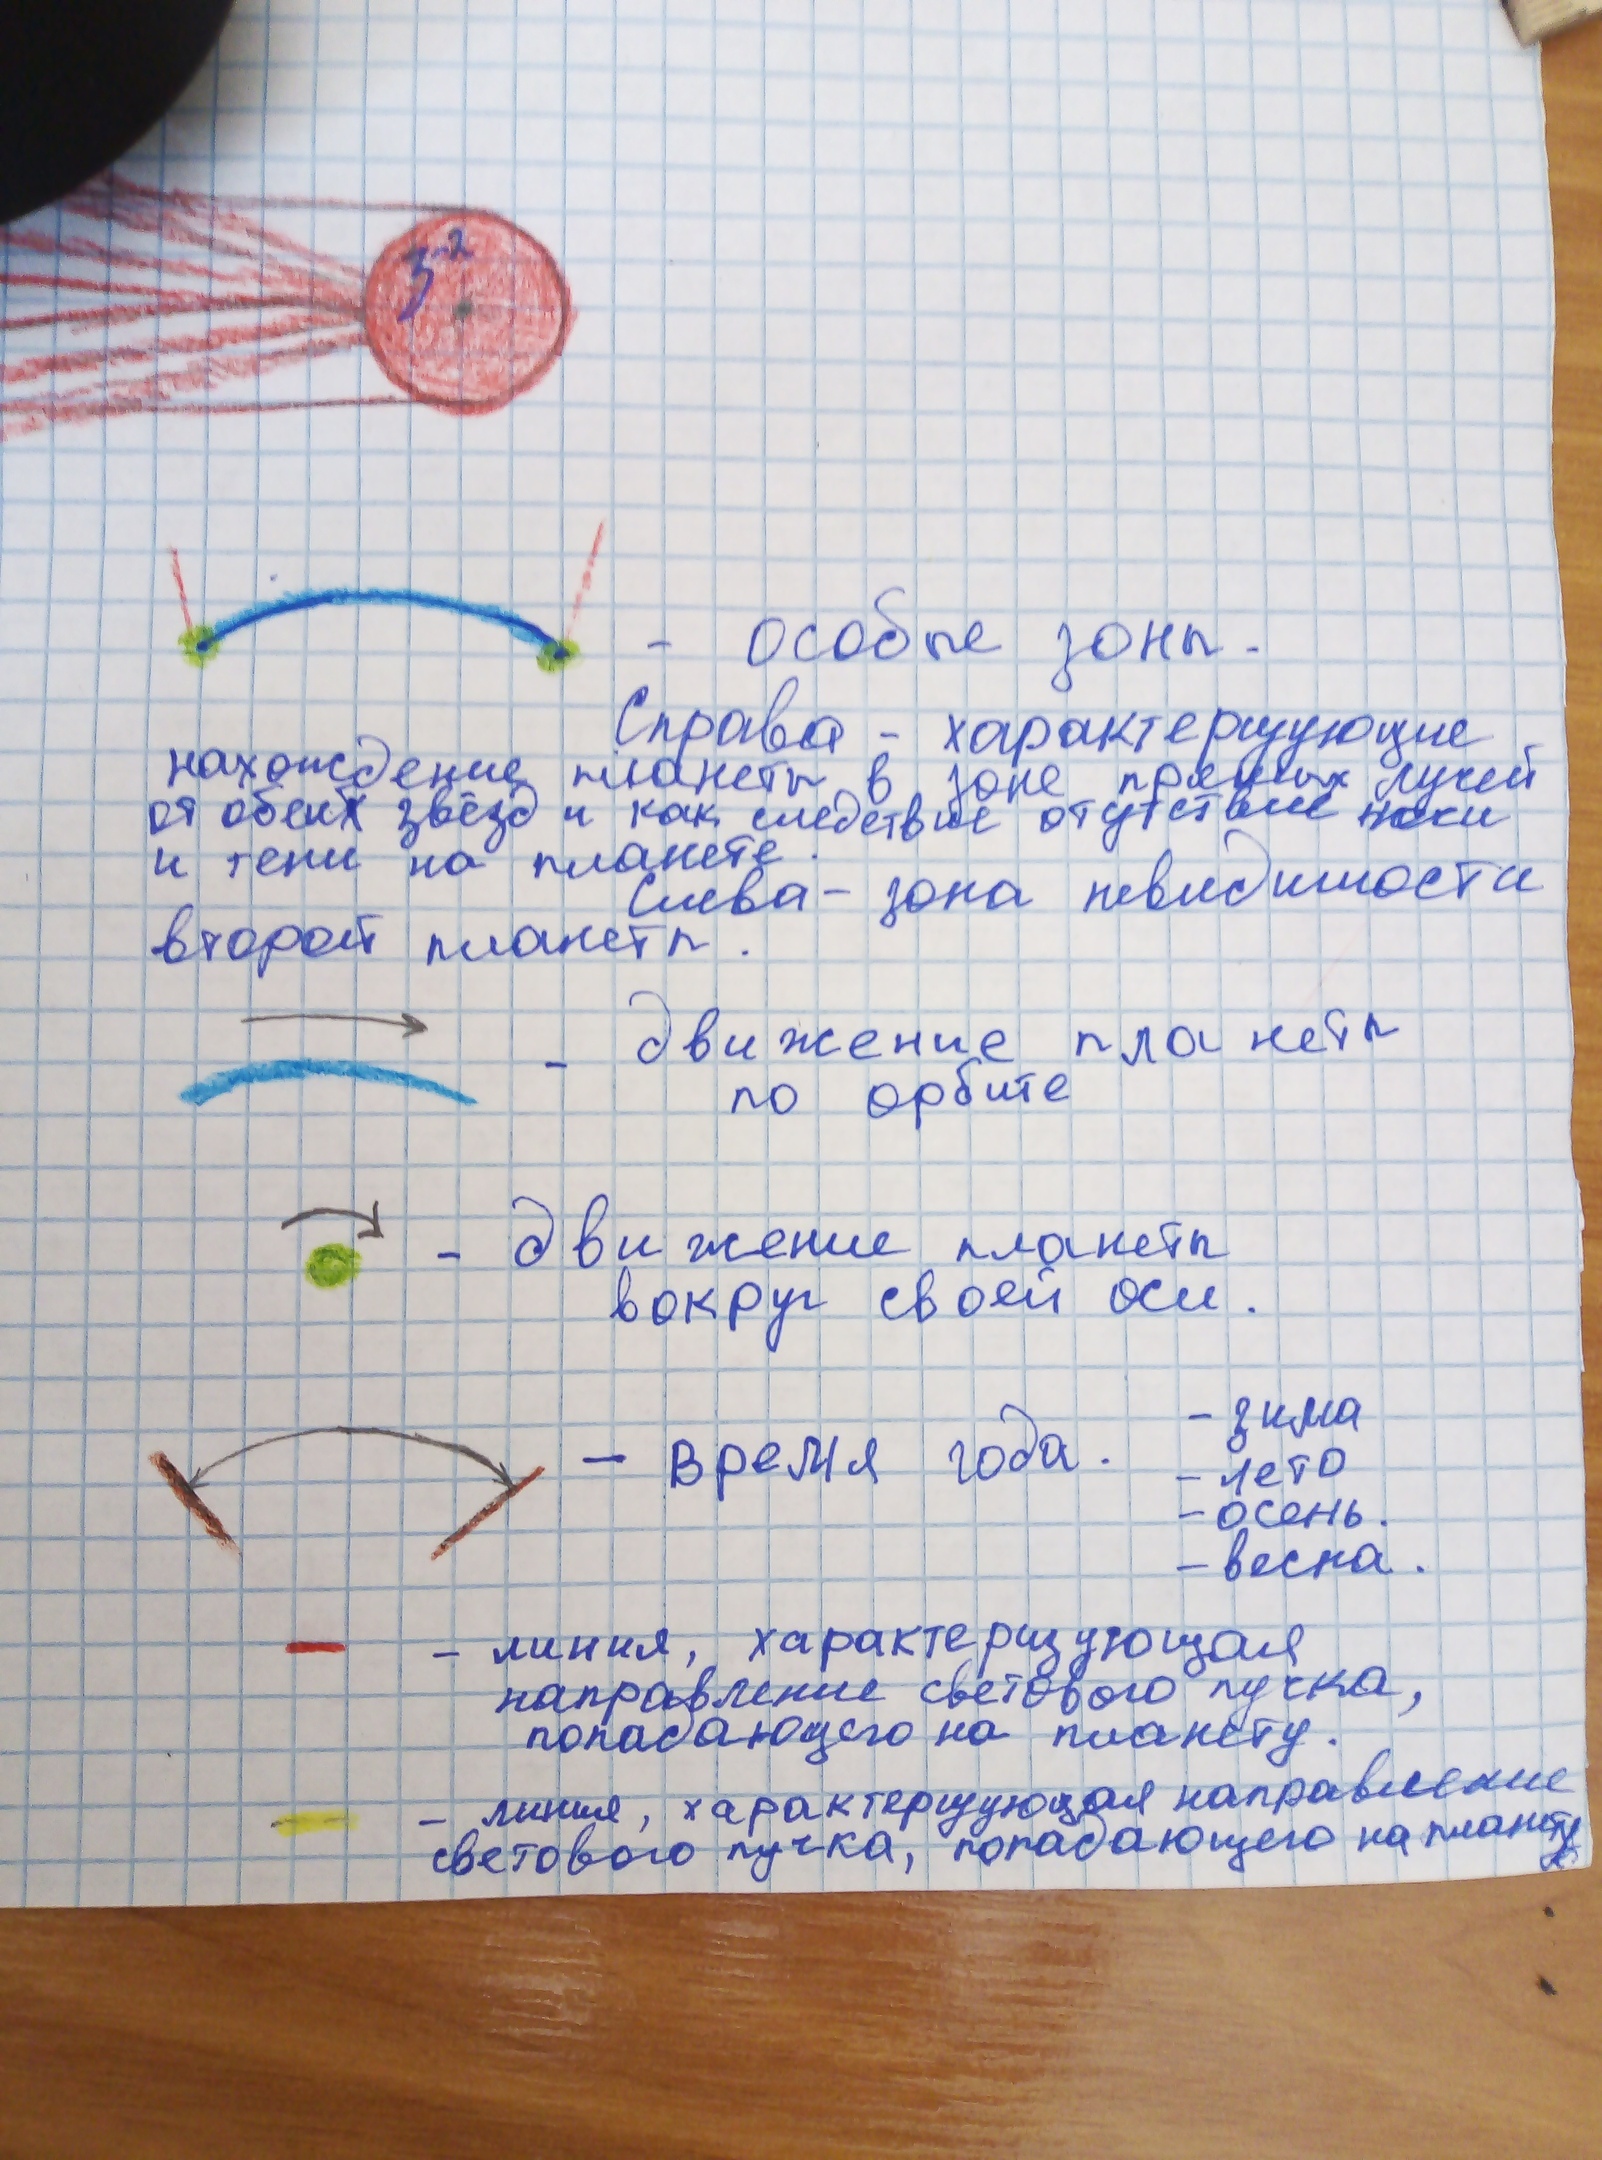 З-2
- особые зоны.
Справа - характеризующие
нахождение планеты в зоне прямых лучей
от обеих звёзд и как следствие отутствие ночи
и тени на планете.
Слева - зона невидимости
второй планеты.
- движение планеты
по орбите
- движение планеты
вокруг своей оси.
- время года.
- зима
- лето
- осень.
- весна.
- линия, характеризующая
направление светового пучка,
попадающего на планету.
- линия, характеризующая направление
светового пучка, попадающего на планету